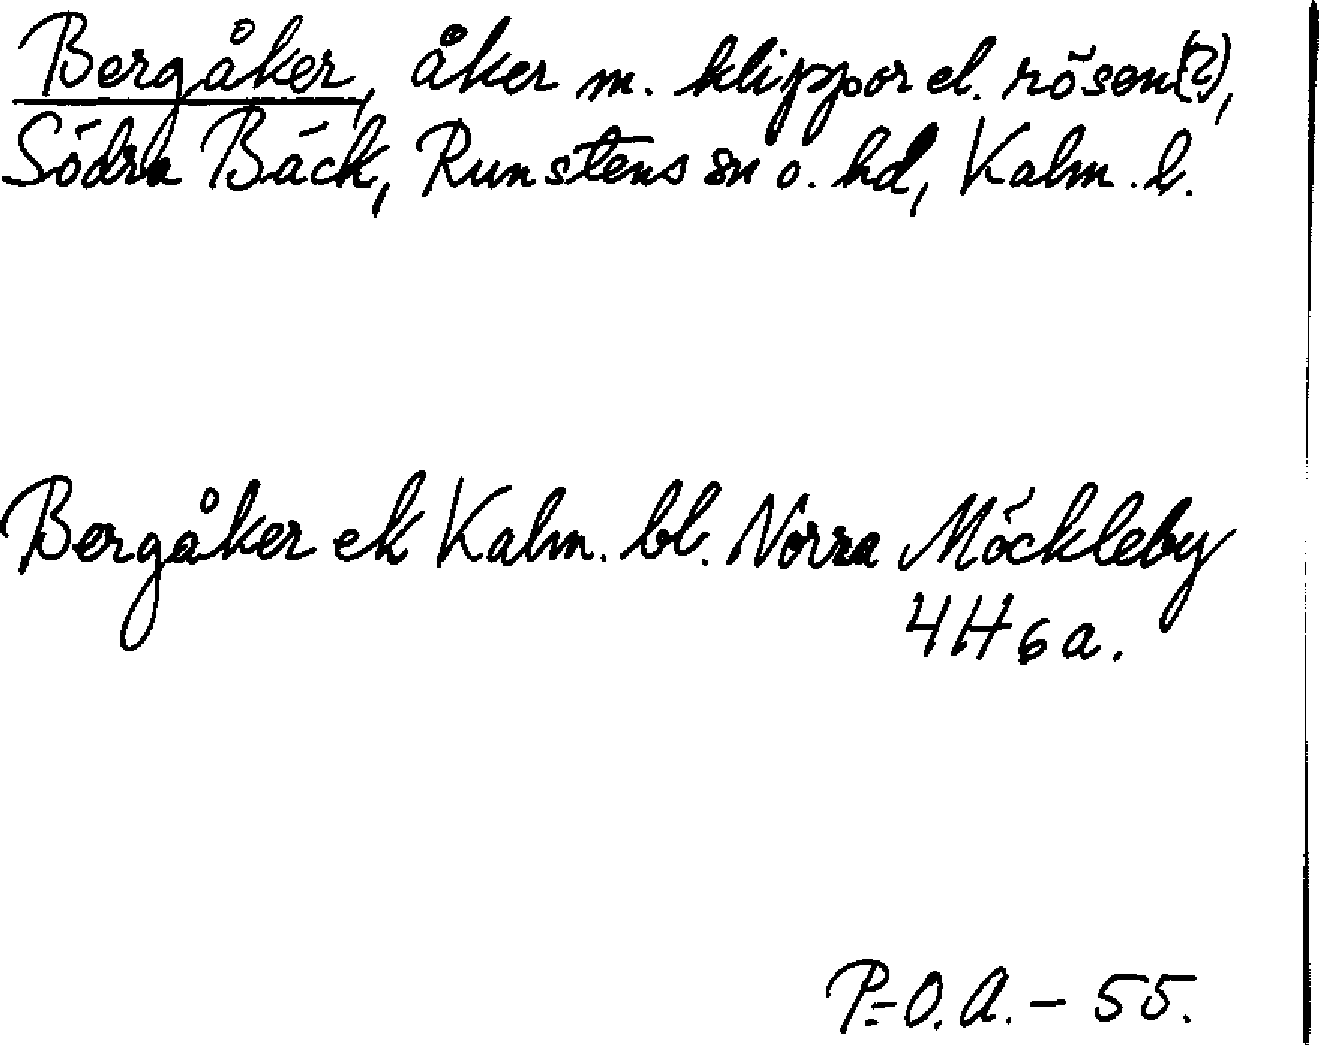 Bergåker, åker m. klippor el. rösen(?),
Södra Bäck, Runstens sn o. hd, Kalm. l.
Bergåker ek Kalm. bl. Norra Möckleby
4H6a.
P.-O.A. - 55.